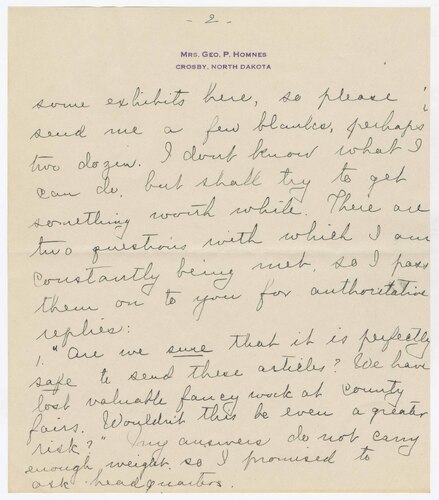 - 2 -
MRS. GEO. P. HOMNES
CROSBY, NORTH DAKOTA
some exhibits here, so please
send me a few blanks, perhaps
two dozen. I don't know what I
can do, but shall try to get
something worth while. There are
two questions with which I am
constantly being met, so I pass
them on to you for authoritative
replies:
1. "Are we sure that it is perfectly
safe to send these articles? We have
lost valuable fancy work at county
fairs. Wouldn't this be even a greater
risk?" My answers do not carry
enough weight, so I promised to
ask headquarters.